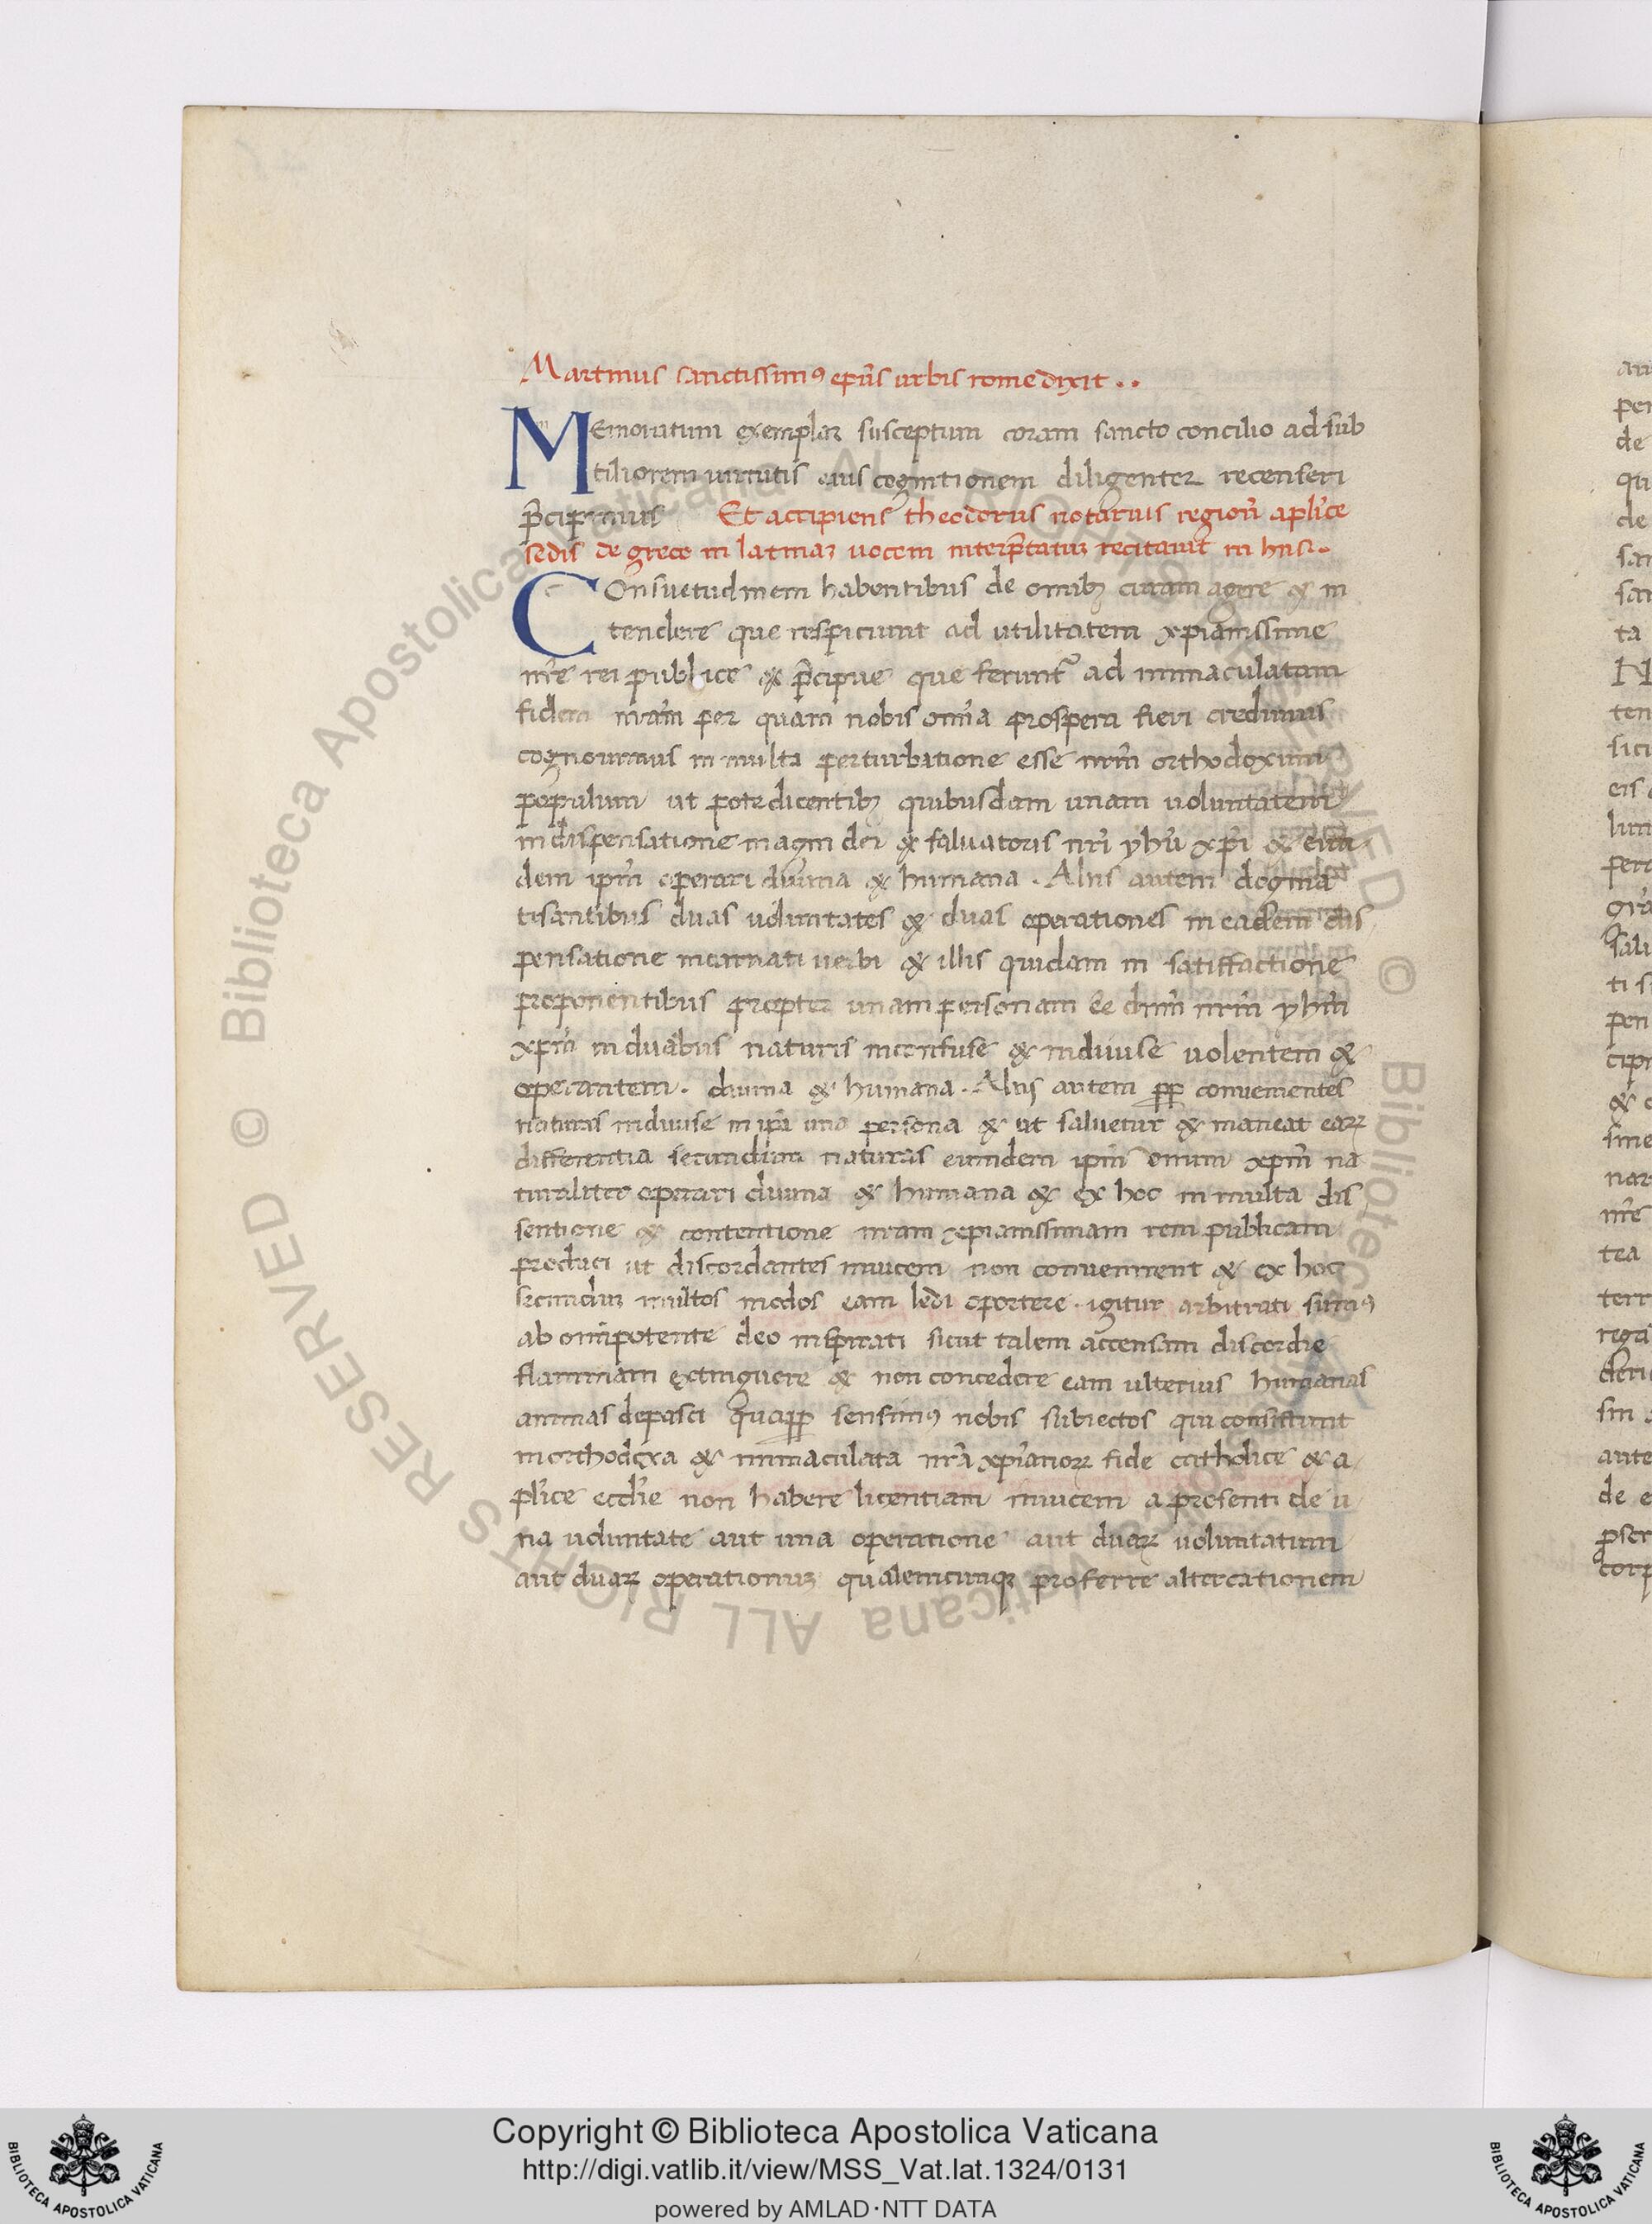 Martinus sanctissimꝰ ep̃us urbis rome dixit . .
Memoratum exemplar susceptum coram sancto concilio ad sub
tiliorem uirtutis eius cognitionem diligenter recenseri
p̃cipimus Et accipiens theodorus notarius region̄ aplice
sedis de greco in latinaʒ uocem interp̃tatuʒ recitauit in his.
Consuetudinem habentibus de omibʒ curam agere & in
tendere que respiciunt ad utilitatem xpianissime
nr̃e rei publice & p̃cipue que ferunt᷑ ad inmaculatam
fidem nr̃am per quam nobis omĩa prospera fieri credimus
cognouimus in multa perturbatione esse nr̃m orthodoxum
populum ut pote dicentibʒ quibusdam unam uoluntatem
in dispensatione magni dei & saluatoris nr̃i yhũ xp̃i & eun
dem ip̃m operari diuina & humana . Aliis autem dogma
tisantibus duas uoluntates & duas operationes in eadem dis
pensatione incarnati uerbi & illis quidam in satisffactione
proponentibus propter unam personam ẽe dñm nr̃m yhm̃
xpm̃ in duabus naturis inconfuse & indiuise uolentem &
operantem . diuina & humana . Aliis autem ꝓꝑ conuenientes
naturas indiuise in ip̃a una persona & ut saluetur & maneat eaꝝ
differentia secundum naturas eumdem ip̃m onum xpm̃ na
turaliter operari diuina & humana & ex hoc in multa dis
sentione & contentione nr̃am xpianissimam rem publicam
produci ut discordantes inuicem non conuenirent & ex hoc
secunduʒ multos modos eam ledi oportere . igitur arbitrati sumꝰ
ab omĩpotente deo inspirati sicut talem accensam discordie
flammam extinguere & non concedere eam ulterius humanas
animas depasci quaꝓꝑ sensimꝰ nobis subiectos qui consistunt
in orthodoxa & inmaculata nr̃a xp̃ianoꝝ fide catholice & a
plice ecclie non habere licentiam inuicem a presenti de u
na uoluntate aut una operatione aut duaꝝ uoluntatum
aut duaꝝ operationuʒ qualemcunqʒ proferre altercationem
Copyright © Biblioteca Apostolica Vaticana
http://digi.vatlib.it/view/MSS_Vat.lat.1324/0131
powered by AMLAD·NTT DATA